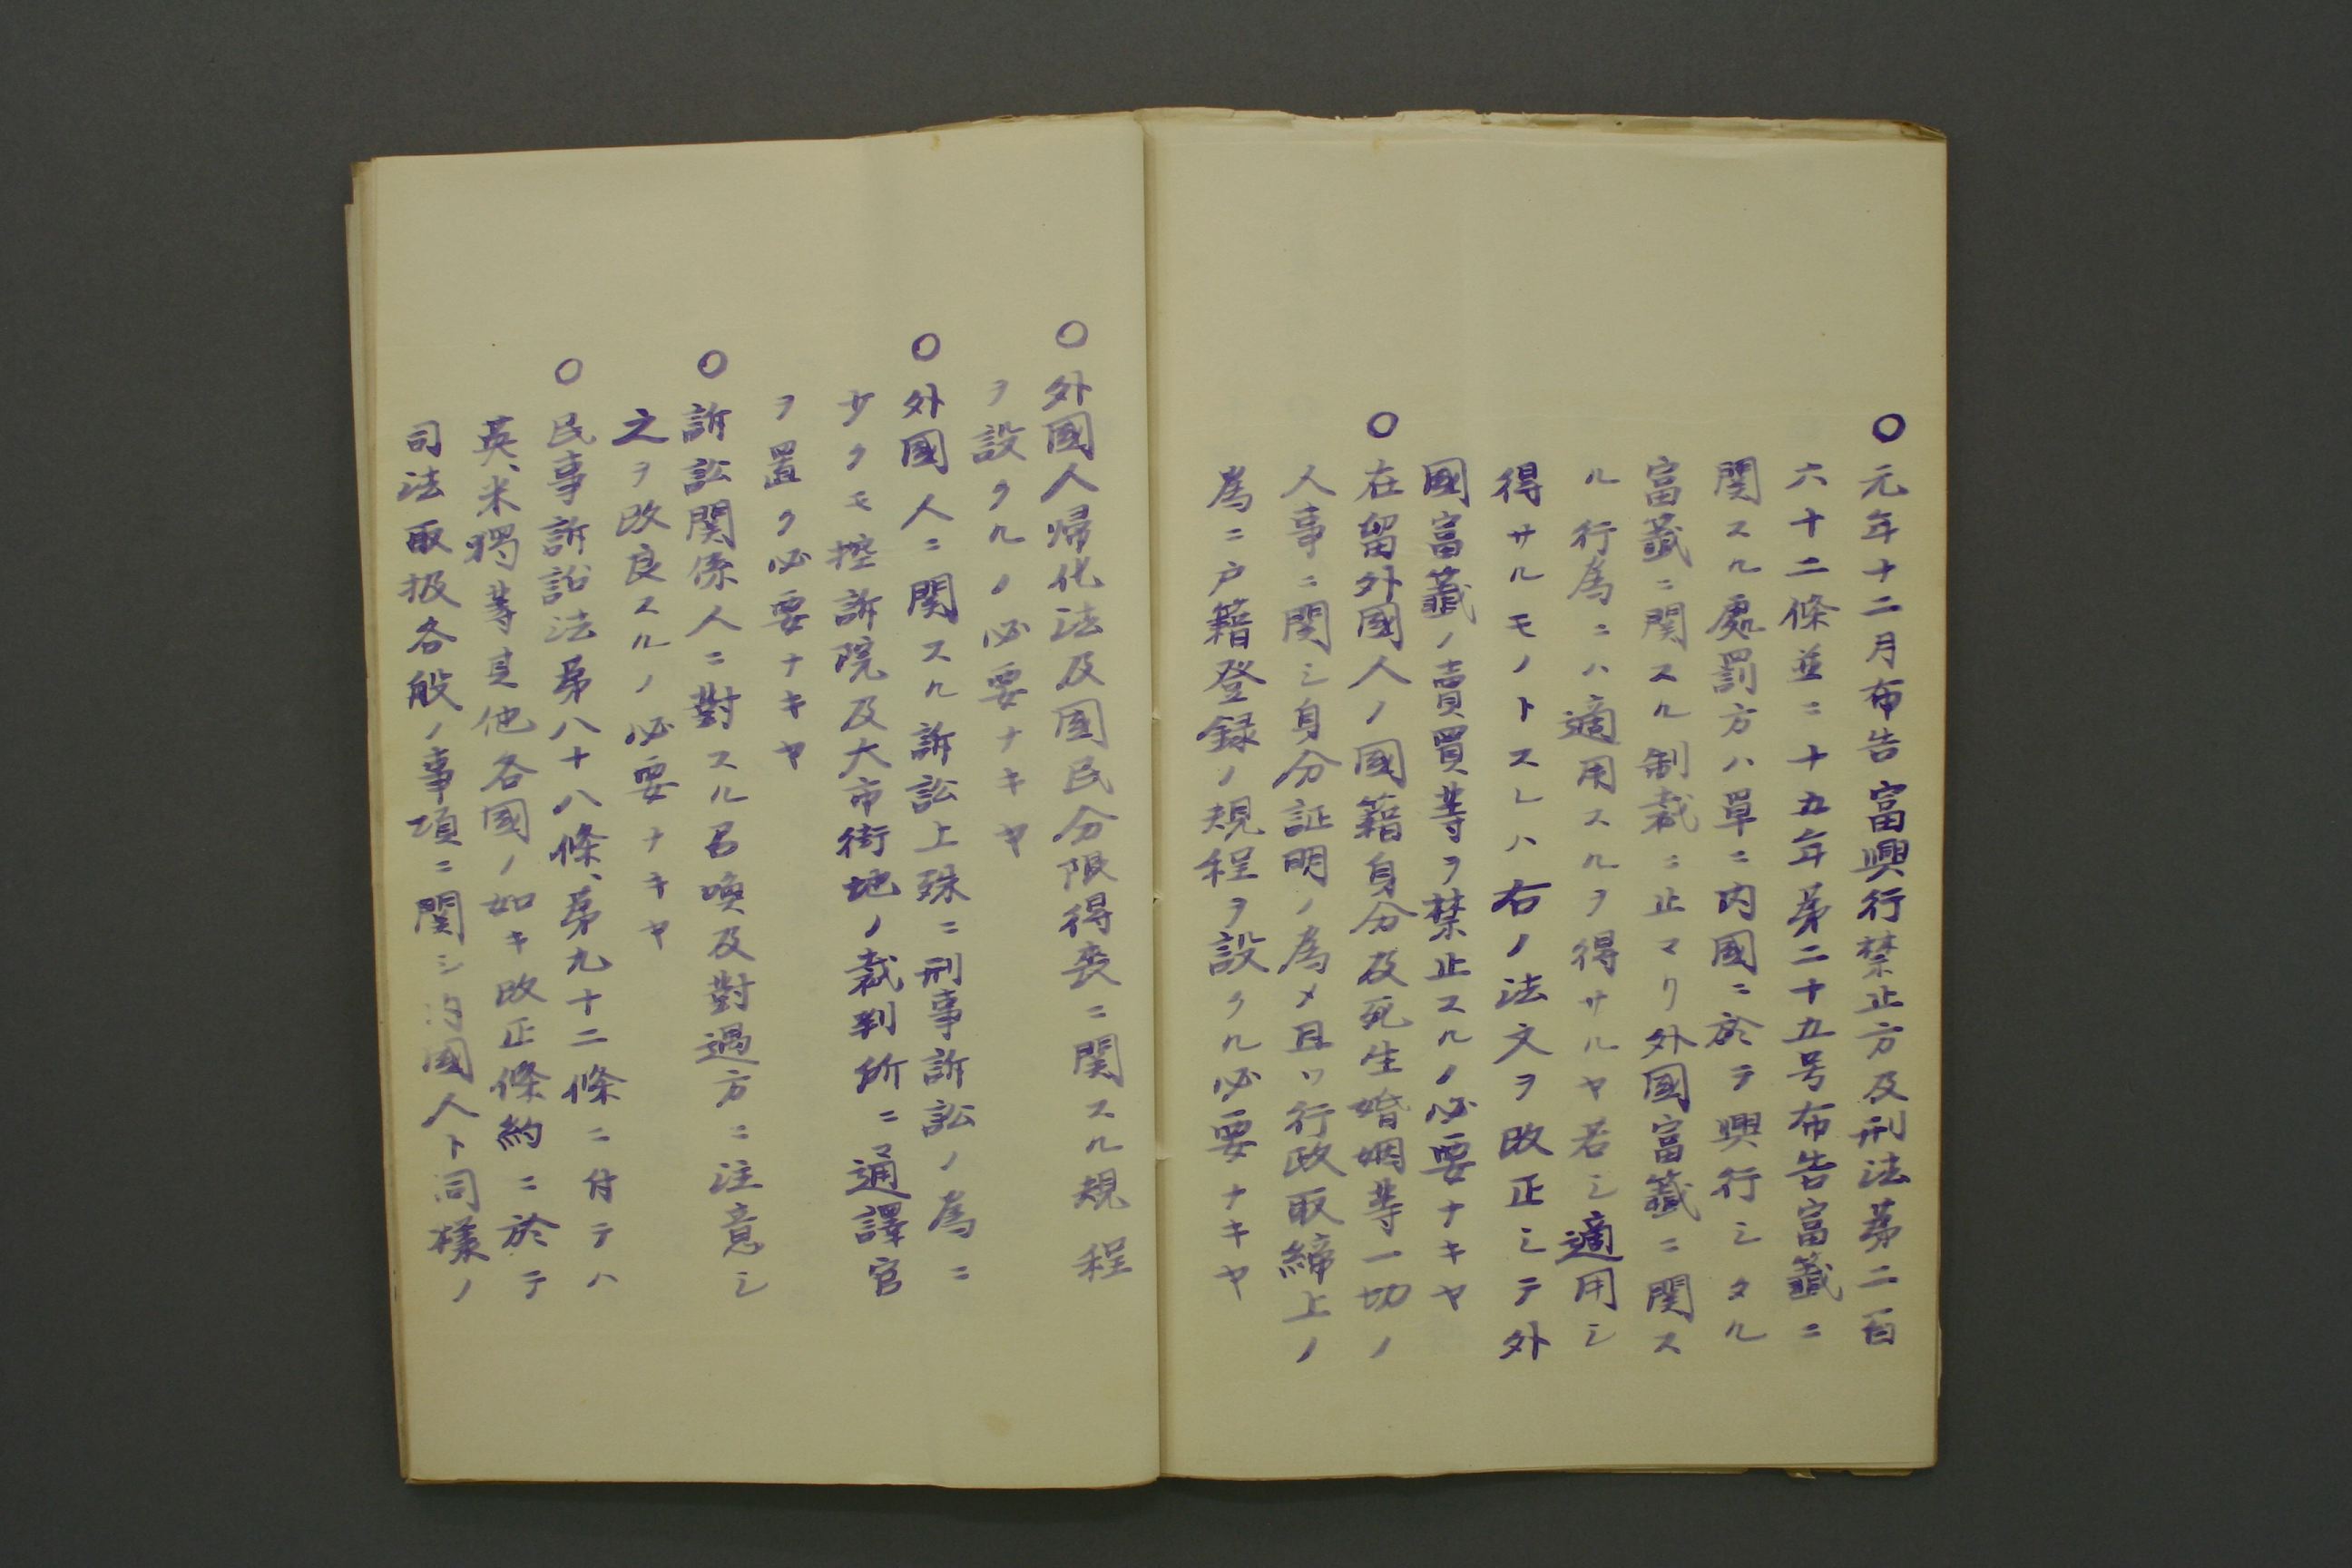 ○元年十二月布告富興行禁止方及刑法第二百
六十二條並ニ十五年第二十五号布告富籤ニ
関スル處罰方ハ単ニ内國ニ於テ興行シタル
富籤ニ関スル制裁ニ止マリ外國富籤ニ関ス
ル行為ニハ適用スルヲ得サルヤ若シ適用シ
得サルモノトスレハ右ノ法文ヲ改正シテ外
國富籤ノ賣買等ヲ禁止スルノ必要ナキヤ
○在留外國人ノ國籍身分及死生婚姻等一切ノ
人事ニ関シ身分証明ノ為メ且ツ行政取締上ノ
為ニ戸籍登録ノ規程ヲ設クル必要ナキヤ
○外國人帰化法及国民分限得喪ニ関スル規程
ヲ設クルノ必要ナキヤ
○外國人ニ関スル訴訟上殊ニ刑事訴訟ノ為ニ
少クモ控訴院及大市街地ノ裁判所ニ通譯官
ヲ置ク必要ナキヤ
○訴訟関係人ニ對スル召喚及對遇方ニ注意シ
之ヲ改良スルノ必要ナキヤ
○民事訴訟法第八十八條、第九十二條ニ付テハ
英、米獨等其他各國ノ如キ改正條約ニ於テ
司法取扱各般ノ事項ニ関シ内國人ト同様ノ